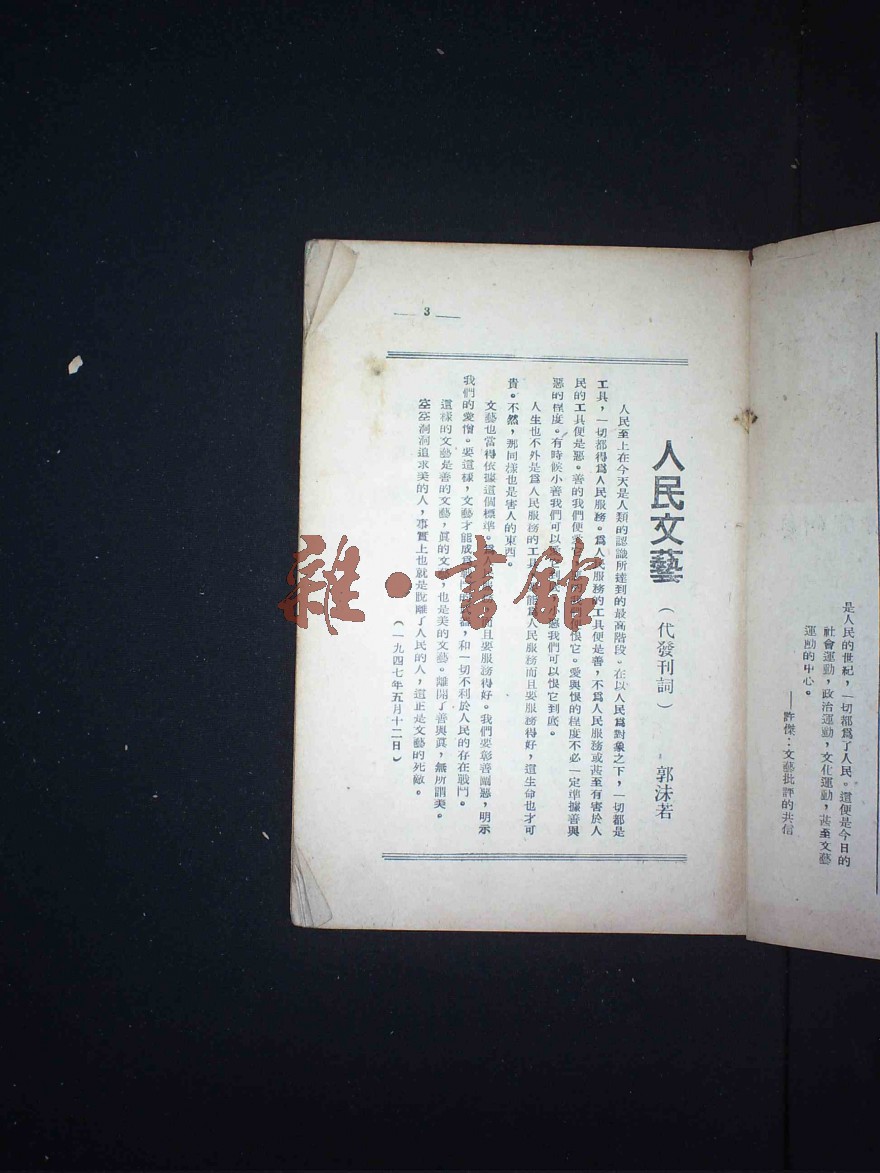 是人民的世紀，一切都爲了人民。這便是今日的
社會運動，政治運動，文化運動，甚至文藝
運動的中心。
——許傑：文藝批評的共信
人民文藝
（代發刊詞）
郭沫若
人民至上在今天是人類的認識所達到的最高階段。在以人民爲對象之下，一切都是
工具，一切都得爲人民服務。爲人民服務的工具便是善，不爲人民服務或甚至有害於人
民的工具便是惡。善的我們便愛它，恨它。愛與恨的程度不必一定準據善與
惡的程度。有時候小善我們可以惡我們可以恨它到底。
人生也不外是爲人民服務的工具，能爲人民服務而且要服務得好，這生命也才可
貴。不然，那同樣也是害人的東西。
文藝也當得依據這個標準。而且要服務得好。我們要彰善癉惡，明示
我們的愛憎。要這樣，文藝才能成爲，和一切不利於人民的存在戰鬥。
這樣的文藝是善的文藝，眞的文藝，也是美的文藝。離開了善與眞，無所謂美。
空空洞洞追求美的人，事實上也就是脫離了人民的人，這正是文藝的死敵。
（一九四七年五月十二日）
3
雜·書館